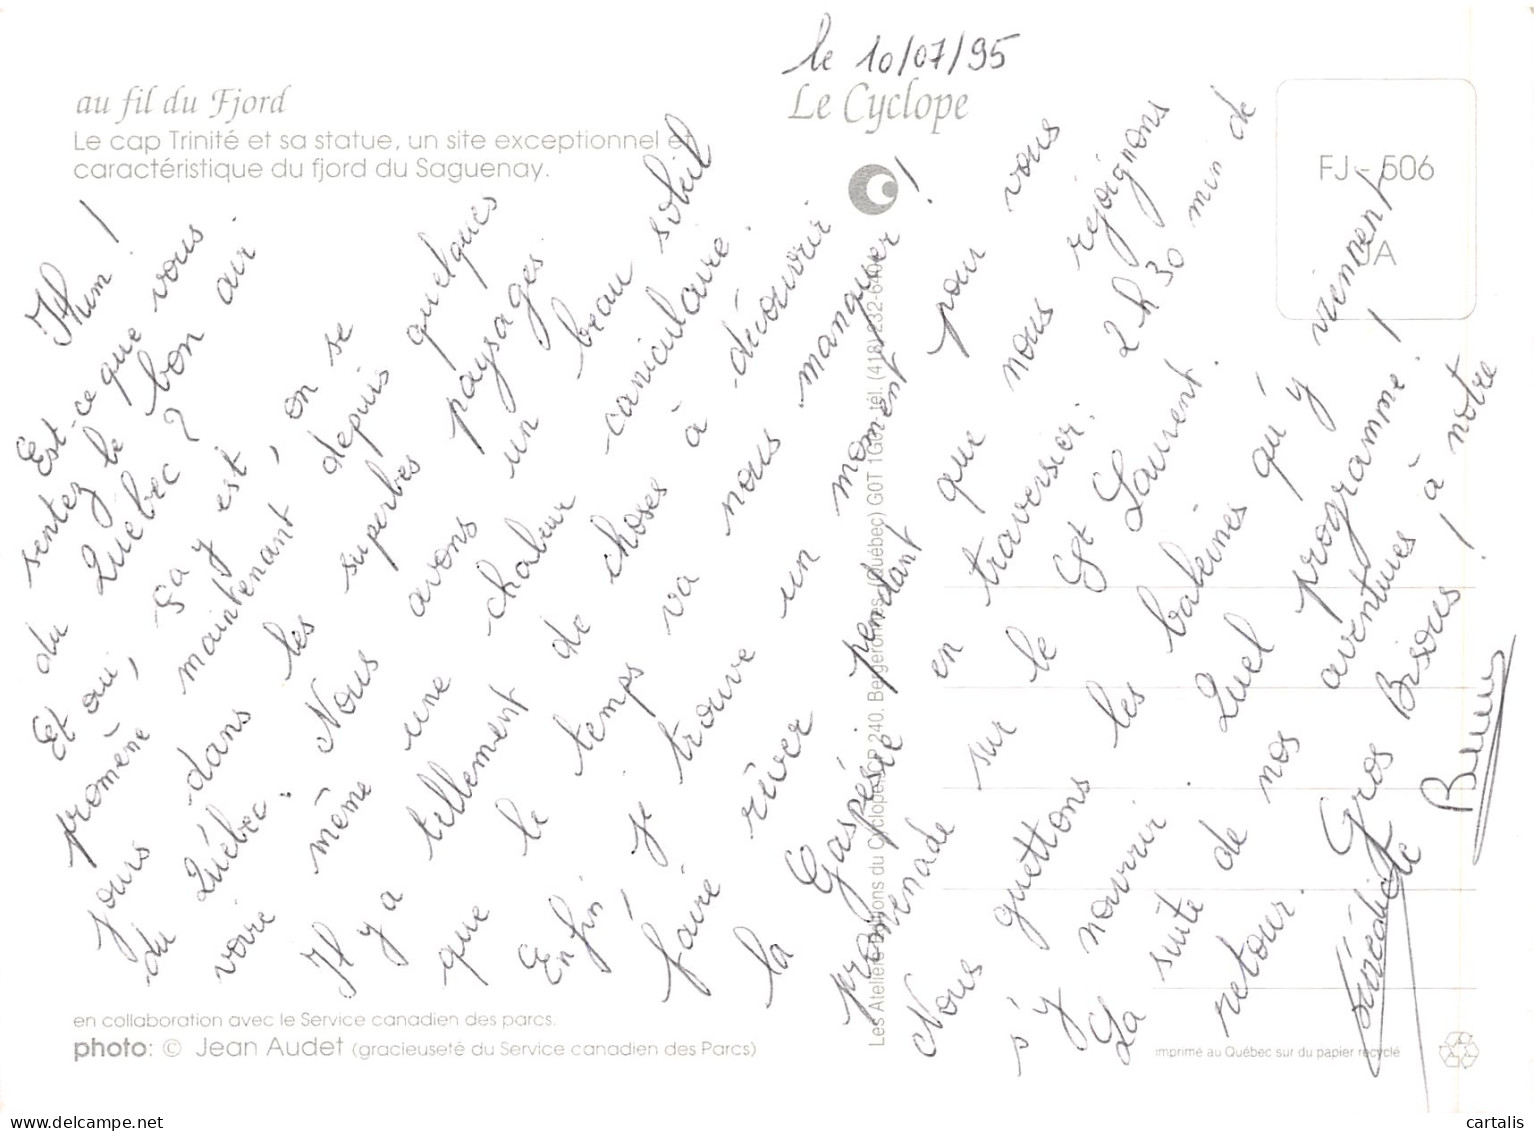 le 10/07/95
au fil du Fjord
Le cap Trinité et sa statue, un site exceptionnel et
caractéristique du fjord du Saguenay.
Le Cyclope
FJ - 506
A
Hum !
Est-ce que vous
sentez le bon air
du Québec ?
Et oui, ça y est, on se
promène maintenant depuis quelques
jours dans les superbes paysages
du Québec. Nous avons un beau soleil
voire même une chaleur caniculaire.
Il y a tellement de choses à découvrir
que le temps va nous manquer !
Enfin, je trouve un moment pour vous
faire rêver pendant que nous rejoignons
la Gaspésie en traversier. 2h30 min de
promenade sur le St Laurent.
Nous guettons les baleines qu'y viennent
s'y nourrir. Quel programme !
La suite de nos aventures à notre
retour.
Gros Bisous !
Bénédicte
Les Ateliers Editions du Cyclope, CP 240, Bergeronnes (Québec) G0T 1G0 - tél. (418) 232-640
en collaboration avec le Service canadien des parcs.
photo: © Jean Audet (gracieuseté du Service canadien des Parcs)
imprimé au Québec sur du papier recyclé
cartalis.com
cartalis